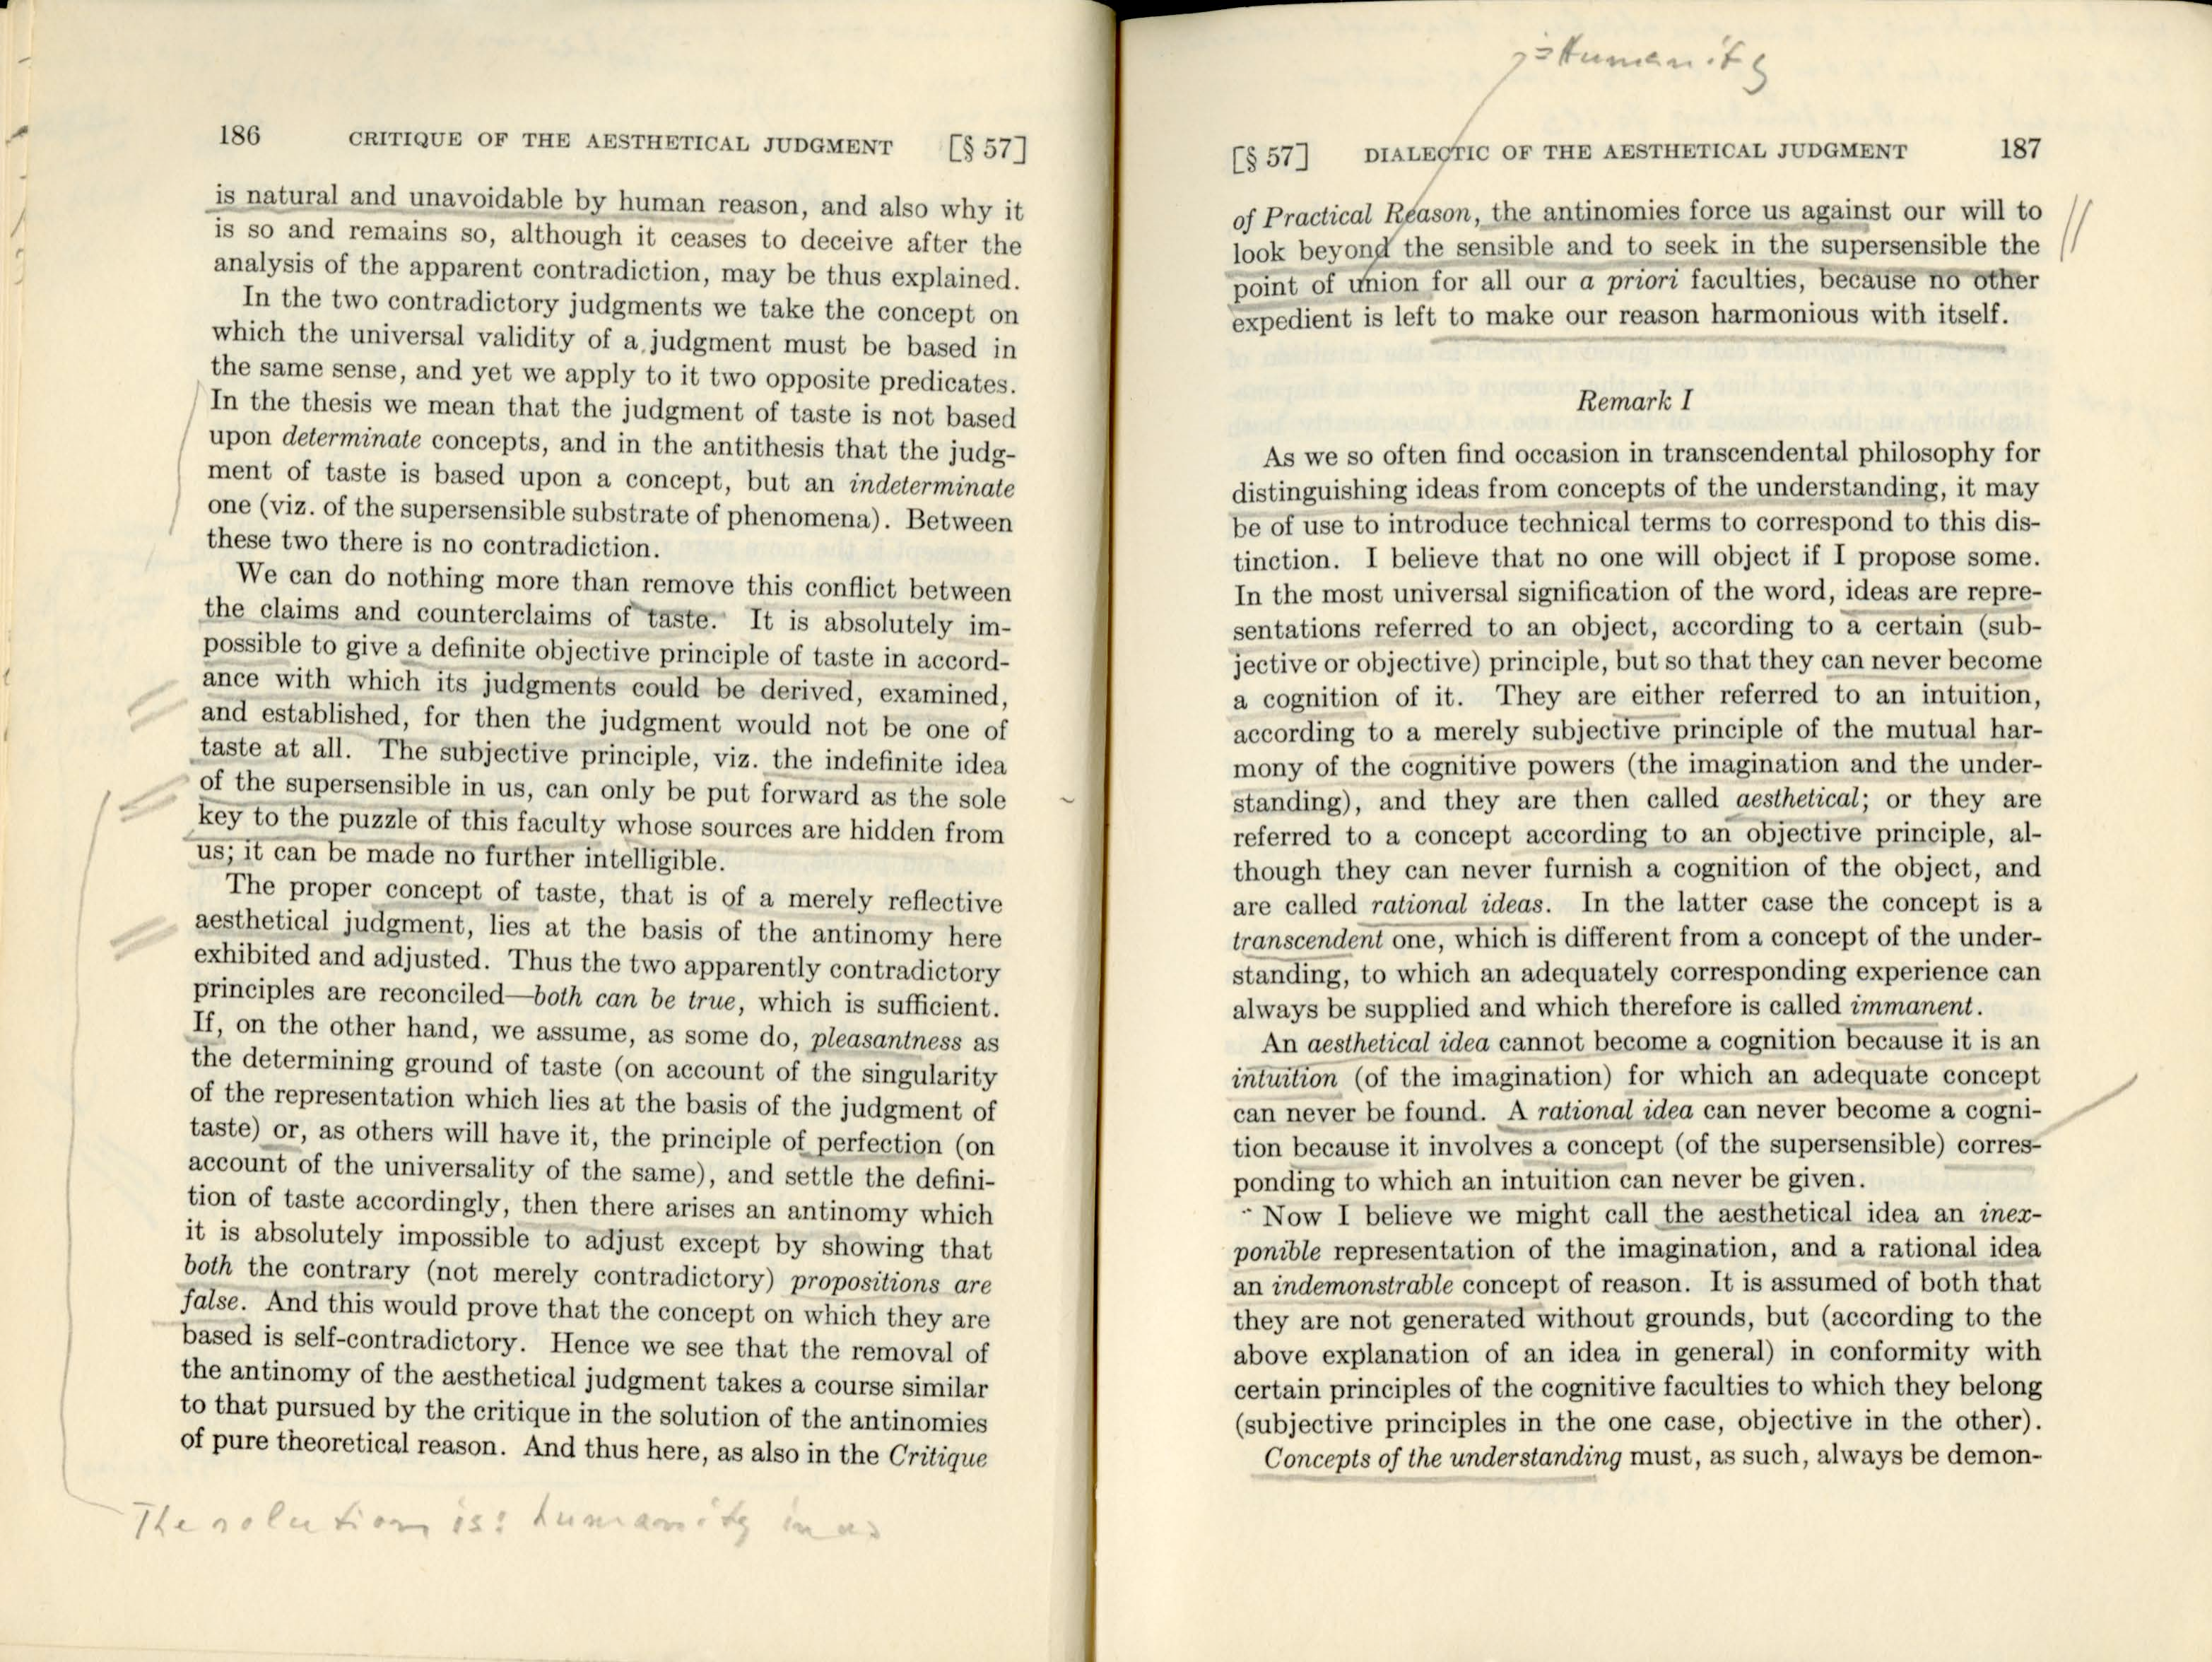 186 CRITIQUE OF THE AESTHETICAL JUDGMENT [§ 57]
is natural and unavoidable by human reason, and also why it
is so and remains so, although it ceases to deceive after the
analysis of the apparent contradiction, may be thus explained.
In the two contradictory judgments we take the concept on
which the universal validity of a judgment must be based in
the same sense, and yet we apply to it two opposite predicates.
In the thesis we mean that the judgment of taste is not based
upon determinate concepts, and in the antithesis that the judg-
ment of taste is based upon a concept, but an indeterminate
one (viz. of the supersensible substrate of phenomena). Between
these two there is no contradiction.
We can do nothing more than remove this conflict between
the claims and counterclaims of taste. It is absolutely im-
possible to give a definite objective principle of taste in accord-
ance with which its judgments could be derived, examined,
and established, for then the judgment would not be one of
taste at all. The subjective principle, viz. the indefinite idea
of the supersensible in us, can only be put forward as the sole
key to the puzzle of this faculty whose sources are hidden from
us; it can be made no further intelligible.
The proper concept of taste, that is of a merely reflective
aesthetical judgment, lies at the basis of the antinomy here
exhibited and adjusted. Thus the two apparently contradictory
principles are reconciled—both can be true, which is sufficient.
If, on the other hand, we assume, as some do, pleasantness as
the determining ground of taste (on account of the singularity
of the representation which lies at the basis of the judgment of
taste) or, as others will have it, the principle of perfection (on
account of the universality of the same), and settle the defini-
tion of taste accordingly, then there arises an antinomy which
it is absolutely impossible to adjust except by showing that
both the contrary (not merely contradictory) propositions are
false. And this would prove that the concept on which they are
based is self-contradictory. Hence we see that the removal of
the antinomy of the aesthetical judgment takes a course similar
to that pursued by the critique in the solution of the antinomies
of pure theoretical reason. And thus here, as also in the Critique
The solution is: humanity in us
= Humanity
[§ 57] DIALECTIC OF THE AESTHETICAL JUDGMENT 187
of Practical Reason, the antinomies force us against our will to
look beyond the sensible and to seek in the supersensible the
point of union for all our a priori faculties, because no other
expedient is left to make our reason harmonious with itself.
Remark I
As we so often find occasion in transcendental philosophy for
distinguishing ideas from concepts of the understanding, it may
be of use to introduce technical terms to correspond to this dis-
tinction. I believe that no one will object if I propose some.
In the most universal signification of the word, ideas are repre-
sentations referred to an object, according to a certain (sub-
jective or objective) principle, but so that they can never become
a cognition of it. They are either referred to an intuition,
according to a merely subjective principle of the mutual har-
mony of the cognitive powers (the imagination and the under-
standing), and they are then called aesthetical; or they are
referred to a concept according to an objective principle, al-
though they can never furnish a cognition of the object, and
are called rational ideas. In the latter case the concept is a
transcendent one, which is different from a concept of the under-
standing, to which an adequately corresponding experience can
always be supplied and which therefore is called immanent.
An aesthetical idea cannot become a cognition because it is an
intuition (of the imagination) for which an adequate concept
can never be found. A rational idea can never become a cogni-
tion because it involves a concept (of the supersensible) corres-
ponding to which an intuition can never be given.
Now I believe we might call the aesthetical idea an inex-
ponible representation of the imagination, and a rational idea
an indemonstrable concept of reason. It is assumed of both that
they are not generated without grounds, but (according to the
above explanation of an idea in general) in conformity with
certain principles of the cognitive faculties to which they belong
(subjective principles in the one case, objective in the other).
Concepts of the understanding must, as such, always be demon-